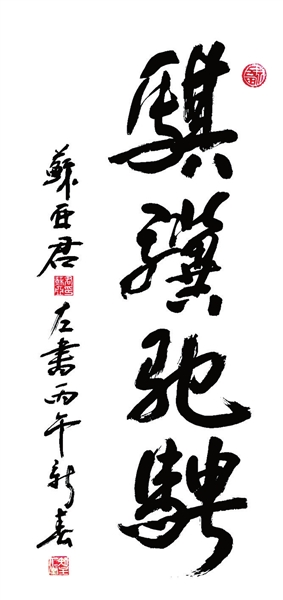 騏驥馳騁
蘇亜君左書丙午新春